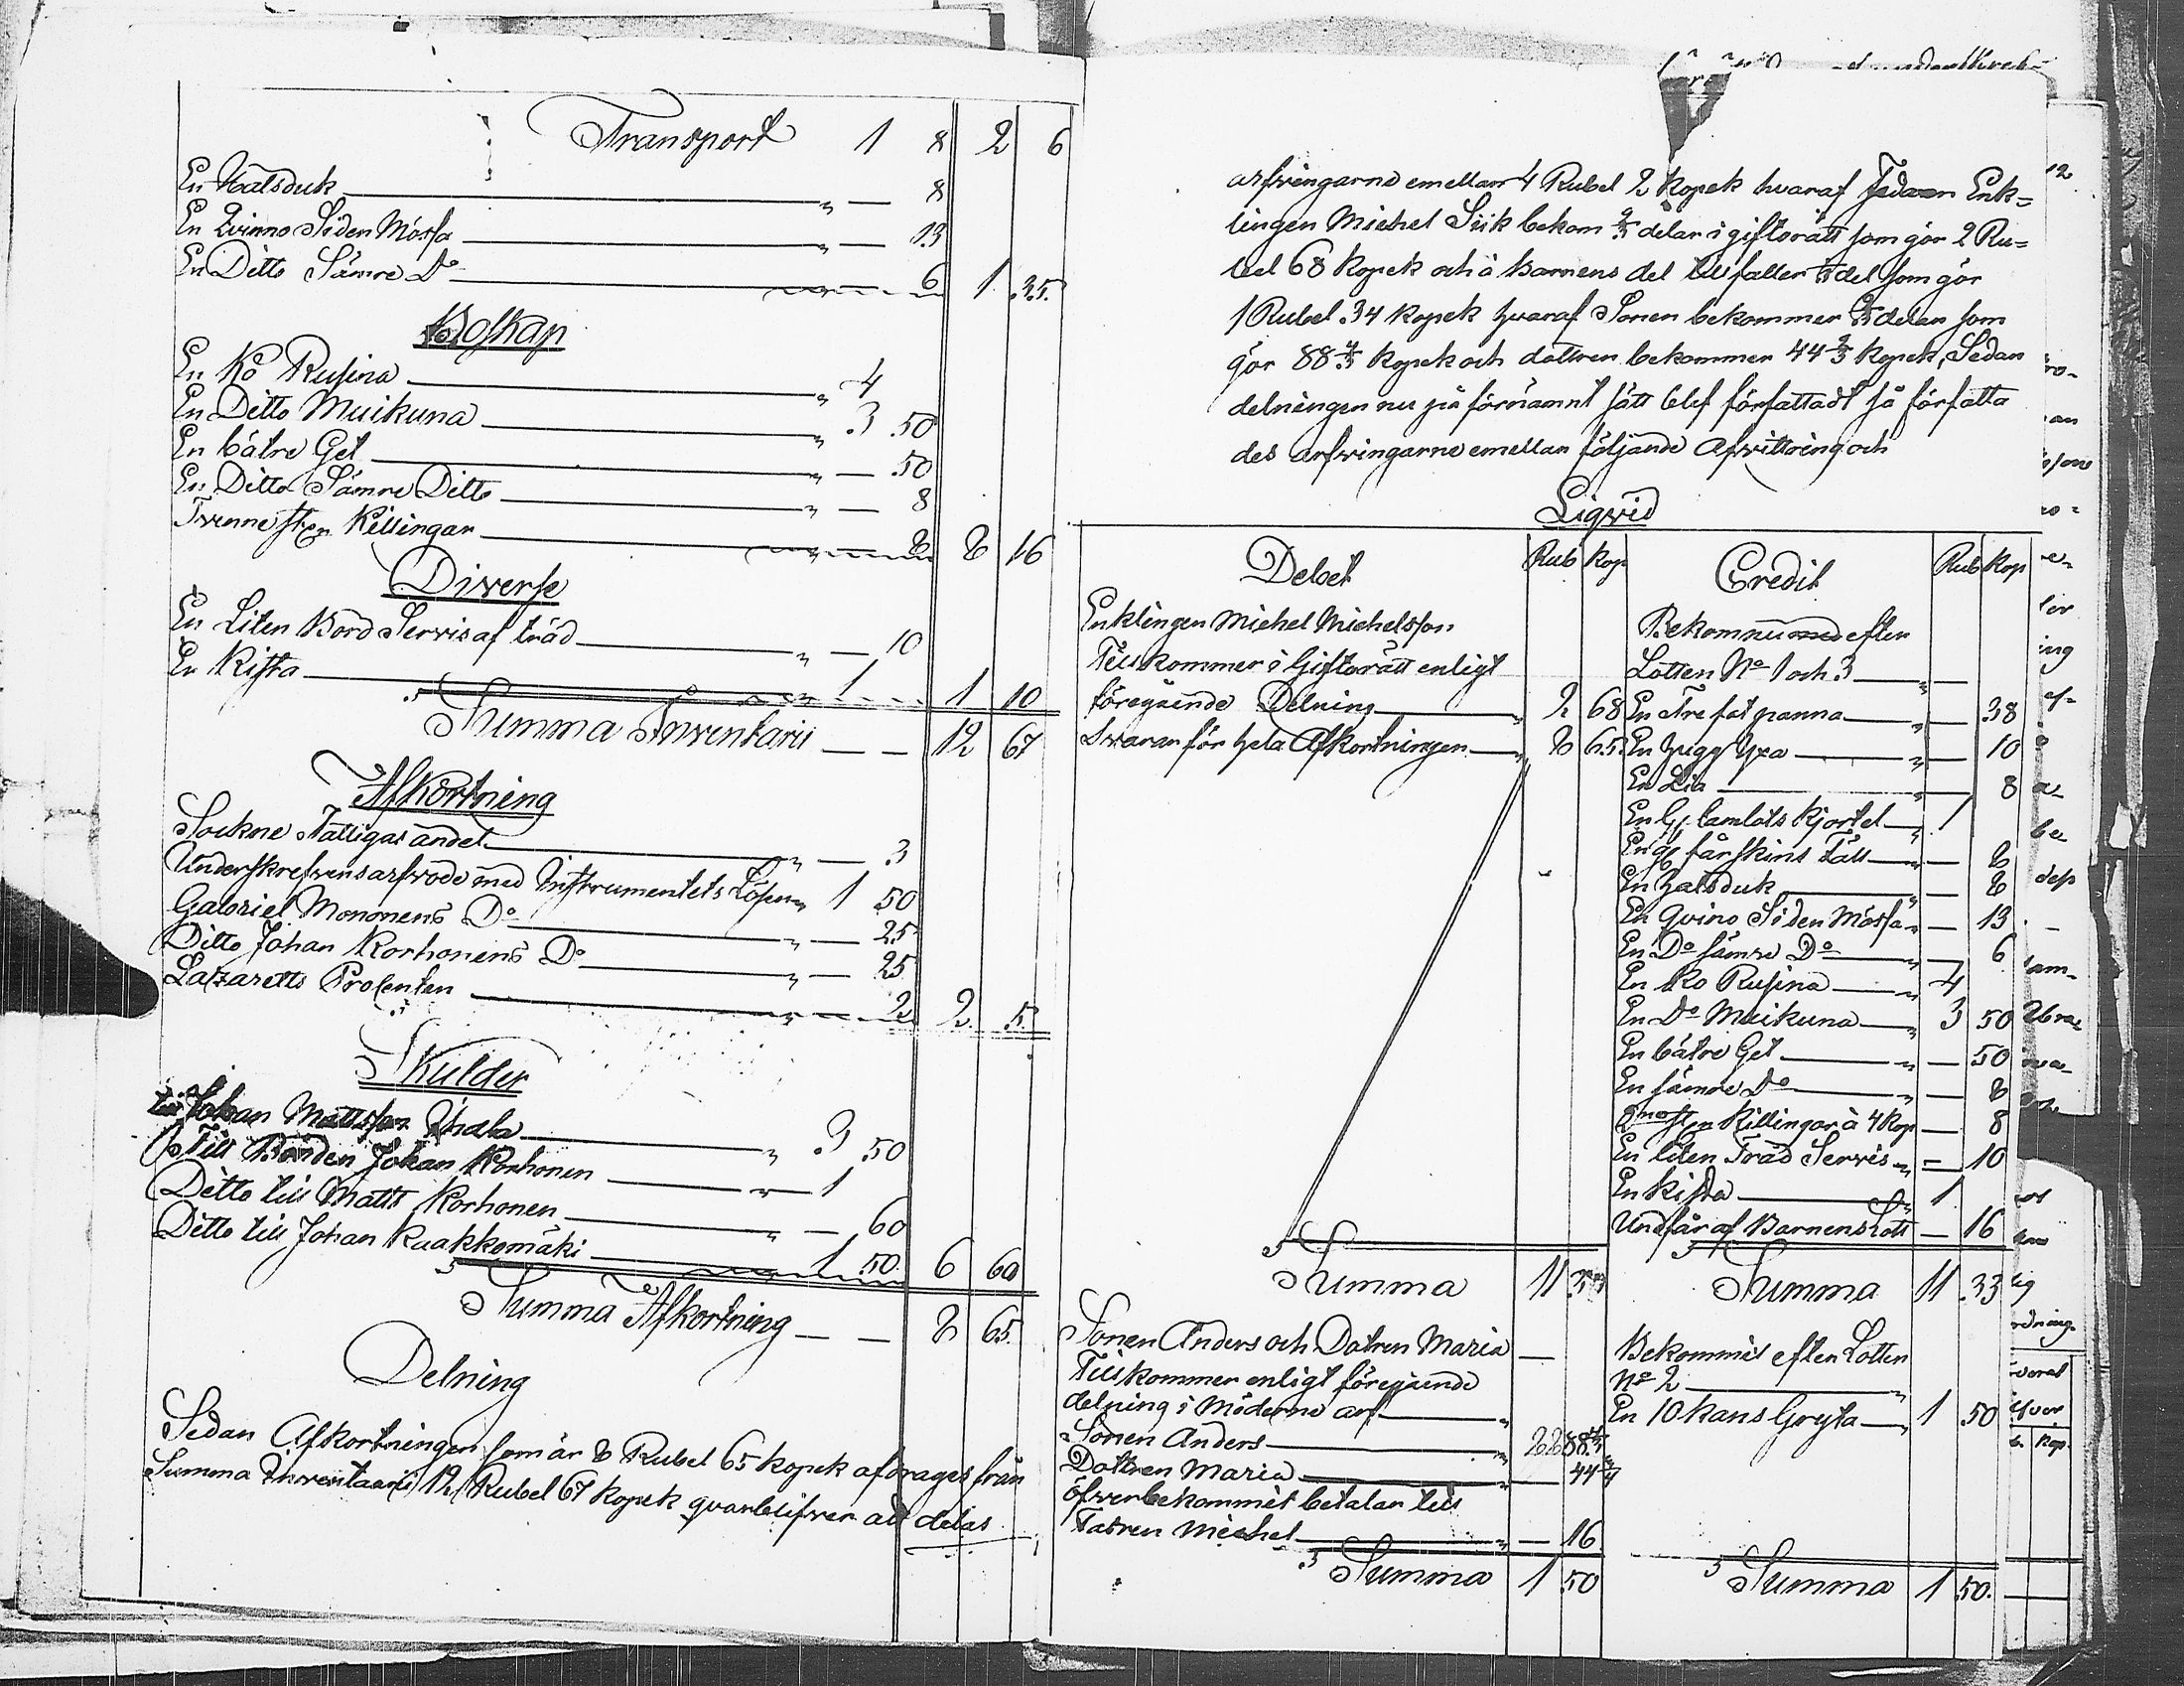 Transport 1 8 2 6
En Halsduk " — 8
En Qvinno Siden Mössa " — 13
En Ditto Sämre Do 6 1 35.
Boskap
En Ko Rusina " 4
En Ditto Muikuna " 3 50
En bätre Get " — 50
En Ditto Sämre Ditto " — 8
Tvenne st. Killingar 8 8 16
Diverse
En Liten Bord Servis af träd " — 10
En Kista 1 1 10
Summa Inventarii — — 12 67
Afkortning
Sockne Fattigas andel " — 3
Underskrefvens arfvode med Instrumentets Lösen " 1 50
Gabriel Mononens Do " — 25
Ditto Johan Korhonens Do " — 25
Lazaretts Procenten 2 2 5
Skulder
till Johan Mattsson Uhala " 3 50
Till Bonden Johan Korhonen " 1
Ditto till Matts Korhonen " — 60
Ditto till Johan Kaakkomäki 1 50 6 60
Summa Afkortning — — 8 65.
Delning
Sedan Afkortningen som är 8 Rubel 65 kopek afdrages från
Summa Inventaarii 12 Rubel 67 kopek qvarblifver att delas
arfvingarne emellan 4 Rubel 2 kopek hvaraf Enk=
lingen Michel Siik bekom 2/3 delar i giftorätt som gör 2 Ru=
bel 68 kopek och å Barnens del tillfaller 1/3 del som gör
1 Rubel 34 kopek hvaraf Sonen bekommer 2/3 delar som
gör 88 4/3 kopek och dottren bekommer 44 2/3 kopek, Sedan
delningen nu på förnämnt sätt blef författadt så författa
des arfvingarne emellan följande Afvittring och
Liqvid
Debet Rub Kop Credit Rub Kop
Enklingen Michel Michelsson
Tillkommer i Giftorätt enligt
föregående Delning " 2 68
Svarar för hela Afkortningen " 8 65.
Summa 11 33
Bekommit efter
Lotten No 1 och 3 " —
En Tre fot panna " — 38
En hugg Yxa " — 10
En Lia " 8
En G. Camlots Kjortel " 1
En G. fårskins Fäll " — 8
En halsduk " — 8
En qvino Siden Mössa " — 13
En Do sämre Do " 6
En Ko Rusina " 4
En Do Muikuna " 3 50
En bätre Get " — 50
En sämre Do " — 8
2ne st. Killingar à 4 Kop — 8
En liten Träd Servis " — 10
En kista " 1
Undfår af Barnens Lott — 16
Summa 11 33
Sonen Anders och Dotren Maria —
Tillkommer enligt föregående
delning i Möderne arf "
Sonen Anders " 88 4/3
Dottren Maria " — 44 2/3
öfverbekommit betalar till
Fadren Michel " — 16
Summa 1 50
Bekommit efter Lotten
No 2 "
En 10 kans Gryta " 1 50
Summa 1 50.